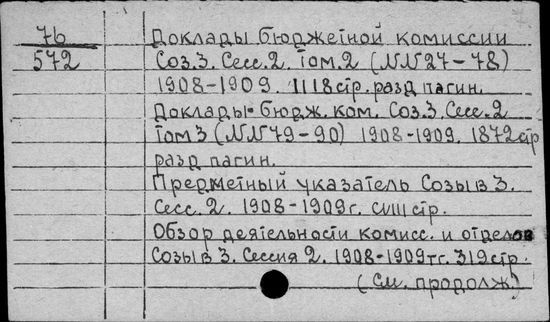 76
572
Доклады бюджетной комиссии
Соз.3. Сесс.2. Том.2 (NN27-78)
1908-1909. 1118стр. разд пагин.
Доклады бюдж. ком. Соз.3. Сесс.2
Том 3 (NN79-90) 1908-1909. 1872стр
разд пагин.
Предметный указатель Созыв 3.
Сесс. 2. 1908-1909г. CVIII стр.
Обзор деятельности комисс. и отделов
Созыв 3. Сессия 2. 1908-1909гг. 319стр.
(См. продолж)